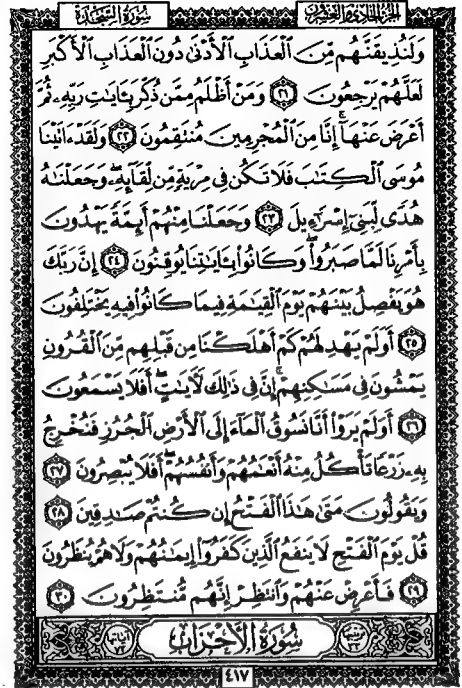 الجزء الحادي والعشرون
سُورَةُ السَّجْدَةِ
وَلَنُذِيقَنَّهُم مِّنَ ٱلْعَذَابِ ٱلْأَدْنَىٰ دُونَ ٱلْعَذَابِ ٱلْأَكْبَرِ
لَعَلَّهُمْ يَرْجِعُونَ ٢١ وَمَنْ أَظْلَمُ مِمَّن ذُكِّرَ بِـَٔايَٰتِ رَبِّهِۦ ثُمَّ
أَعْرَضَ عَنْهَآ ۚ إِنَّا مِنَ ٱلْمُجْرِمِينَ مُنتَقِمُونَ ٢٢ وَلَقَدْ ءَاتَيْنَا
مُوسَى ٱلْكِتَٰبَ فَلَا تَكُن فِى مِرْيَةٍ مِّن لِّقَآئِهِۦ ۖ وَجَعَلْنَٰهُ
هُدًى لِّبَنِىٓ إِسْرَٰٓءِيلَ ٢٣ وَجَعَلْنَا مِنْهُمْ أَئِمَّةً يَهْدُونَ
بِأَمْرِنَا لَمَّا صَبَرُوا۟ ۖ وَكَانُوا۟ بِـَٔايَٰتِنَا يُوقِنُونَ ٢٤ إِنَّ رَبَّكَ
هُوَ يَفْصِلُ بَيْنَهُمْ يَوْمَ ٱلْقِيَٰمَةِ فِيمَا كَانُوا۟ فِيهِ يَخْتَلِفُونَ
٢٥ أَوَلَمْ يَهْدِ لَهُمْ كَمْ أَهْلَكْنَا مِن قَبْلِهِم مِّنَ ٱلْقُرُونِ
يَمْشُونَ فِى مَسَٰكِنِهِمْ ۚ إِنَّ فِى ذَٰلِكَ لَـَٔايَٰتٍ ۖ أَفَلَا يَسْمَعُونَ
٢٦ أَوَلَمْ يَرَوْا۟ أَنَّا نَسُوقُ ٱلْمَآءَ إِلَى ٱلْأَرْضِ ٱلْجُرُزِ فَنُخْرِجُ
بِهِۦ زَرْعًا تَأْكُلُ مِنْهُ أَنْعَٰمُهُمْ وَأَنفُسُهُمْ ۖ أَفَلَا يُبْصِرُونَ ٢٧
وَيَقُولُونَ مَتَىٰ هَٰذَا ٱلْفَتْحُ إِن كُنتُمْ صَٰدِقِينَ ٢٨
قُلْ يَوْمَ ٱلْفَتْحِ لَا يَنفَعُ ٱلَّذِينَ كَفَرُوٓا۟ إِيمَٰنُهُمْ وَلَا هُمْ يُنظَرُونَ
٢٩ فَأَعْرِضْ عَنْهُمْ وَٱنتَظِرْ إِنَّهُم مُّنتَظِرُونَ ٣٠
ترتيبها ٣٣ سُورَةُ الأَحْزَابِ آياتها ٧٣
٤١٧